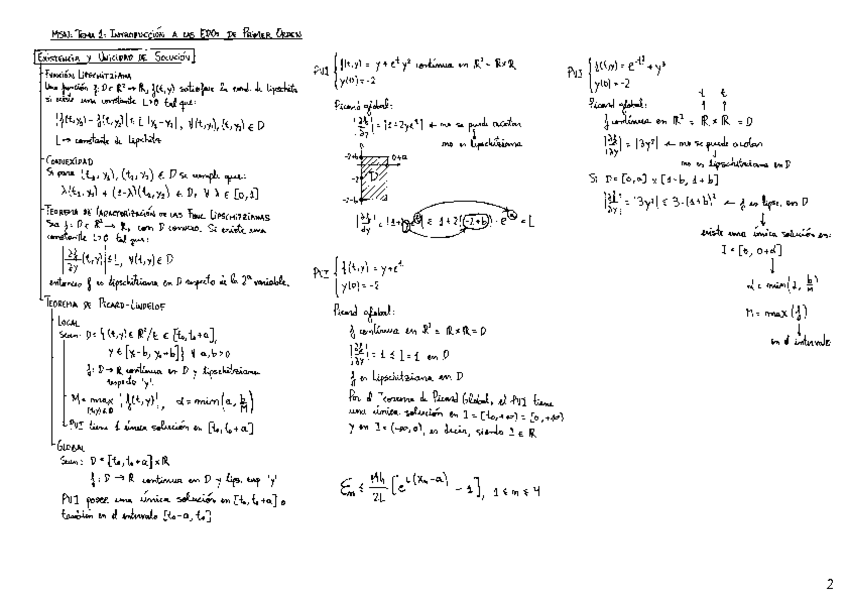 MSN: TEMA 1: INTRODUCCIÓN A LAS EDOs DE PRIMER ORDEN
EXISTENCIA Y UNICIDAD DE SOLUCIÓN
FUNCIÓN LIPSCHITZIANA
Una función f: D ⊂ R² → R, f(t,y) satisface la cond. de Lipschitz
si existe una constante L>0 tal que:
|f(t,y₁) - f(t,y₂)| ≤ L |y₁-y₂|, ∀(t,y₁), (t,y₂) ∈ D
L → constante de Lipschitz
CONVEXIDAD
Si para (t₁,y₁), (t₂,y₂) ∈ D se cumple que:
λ(t₁,y₁) + (1-λ)(t₂,y₂) ∈ D, ∀ λ ∈ [0,1]
TEOREMA DE CARACTERIZACIÓN DE LAS FUNC. LIPSCHITZIANAS
Sea f: D ⊂ R² → R, con D convexo. Si existe una
constante L>0 tal que:
|∂f/∂y (t,y)| ≤ L, ∀(t,y) ∈ D
entonces f es Lipschitziana en D respecto de la 2ª variable.
TEOREMA DE PICARD-LINDELOF
LOCAL
Sean: D = {(t,y) ∈ R² / t ∈ [t₀, t₀+a],
y ∈ [y₀-b, y₀+b]} ∀ a,b>0
f: D → R continua en D y lipschitziana
respecto 'y'.
M = max |f(t,y)|, α = min(a, b/M)
(t,y)∈D
PVI tiene 1 única solución en [t₀, t₀+α]
GLOBAL
Sean: D = [t₀, t₀+a] x R
f: D → R continua en D y Lips. resp 'y'
PVI posee una única solución en [t₀, t₀+a] o
también en el intervalo [t₀-a, t₀]
PVI { f(t,y) = y + e^t y² continua en R² = R x R
y(0) = -2
Picard global:
|∂f/∂y| = |1 + 2ye^t| ← no se puede acotar
no es lipschitziana
-2+b
0+a
D
-2
-2-b
|∂f/∂y| = |1+2ye^t| ≤ 1 + 2|(-2+b)| · e^a = L
PVI { f(t,y) = y + e^t
y(0) = -2
Picard global:
f continua en R² = R x R = D
|∂f/∂y| = 1 ≤ L = 1 en D
f es Lipschitziana en D
Por el Teorema de Picard Global, el PVI tiene
una única solución en I = [t₀, +∞) = [0, +∞)
y en I = (-∞, 0], es decir, siendo I ∈ R
Eₙ ≤ Mh/2L [e^{L(xₙ-a)} - 1], 1 ≤ n ≤ 4
PVI { f(t,y) = e^{-t²} + y³
y(0) = -2
Picard global:
f continua en R² = R x R = D
|∂f/∂y| = |3y²| ← no se puede acotar
no es lipschitziana en D
Si D = [0,a] x [1-b, 1+b]
|∂f/∂y| = |3y²| ≤ 3·(1+b)² ← f es lips. en D
existe una única solución en:
I = [0, 0+α]
α = min(a, b/M)
M = max (f)
en el intervalo
2